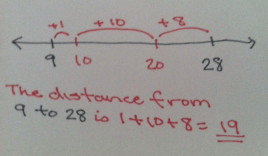 +1 +10 +8
9 10 20 28
The distance from
9 to 28 is 1+10+8= 19